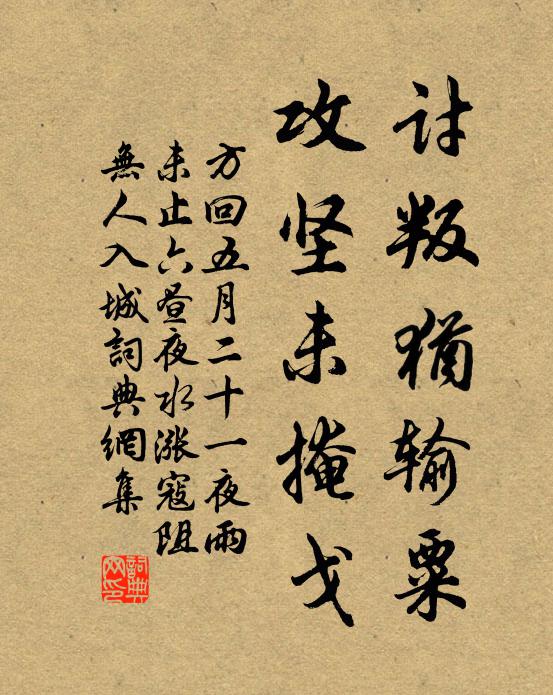 讨叛犹输粟
攻坚未掩戈
方回五月二十一夜雨
未止六昼夜水涨寇阻
無人入城詞典網集
詞典网印